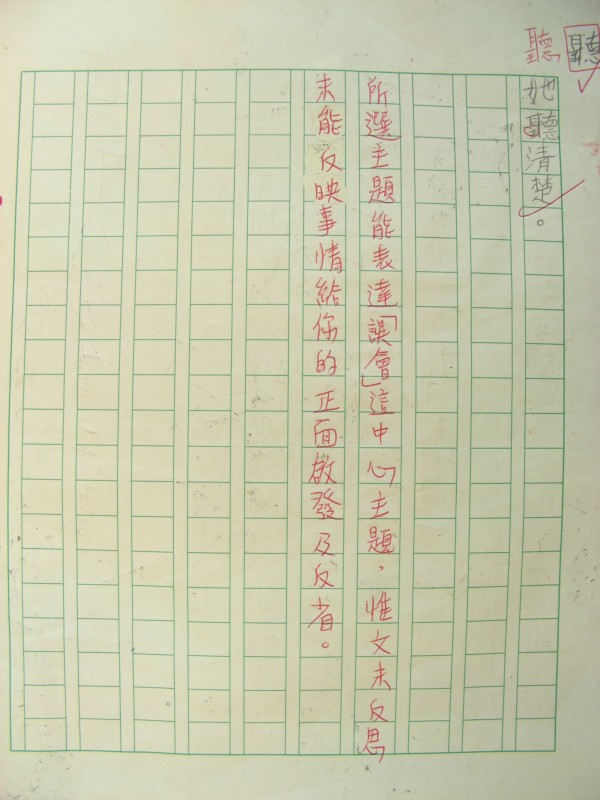 聽聽
她聽清楚。
所選主題能表達「誤會」這中心主題，惟文未反思
未能反映事情給你的正面啟發及反省。